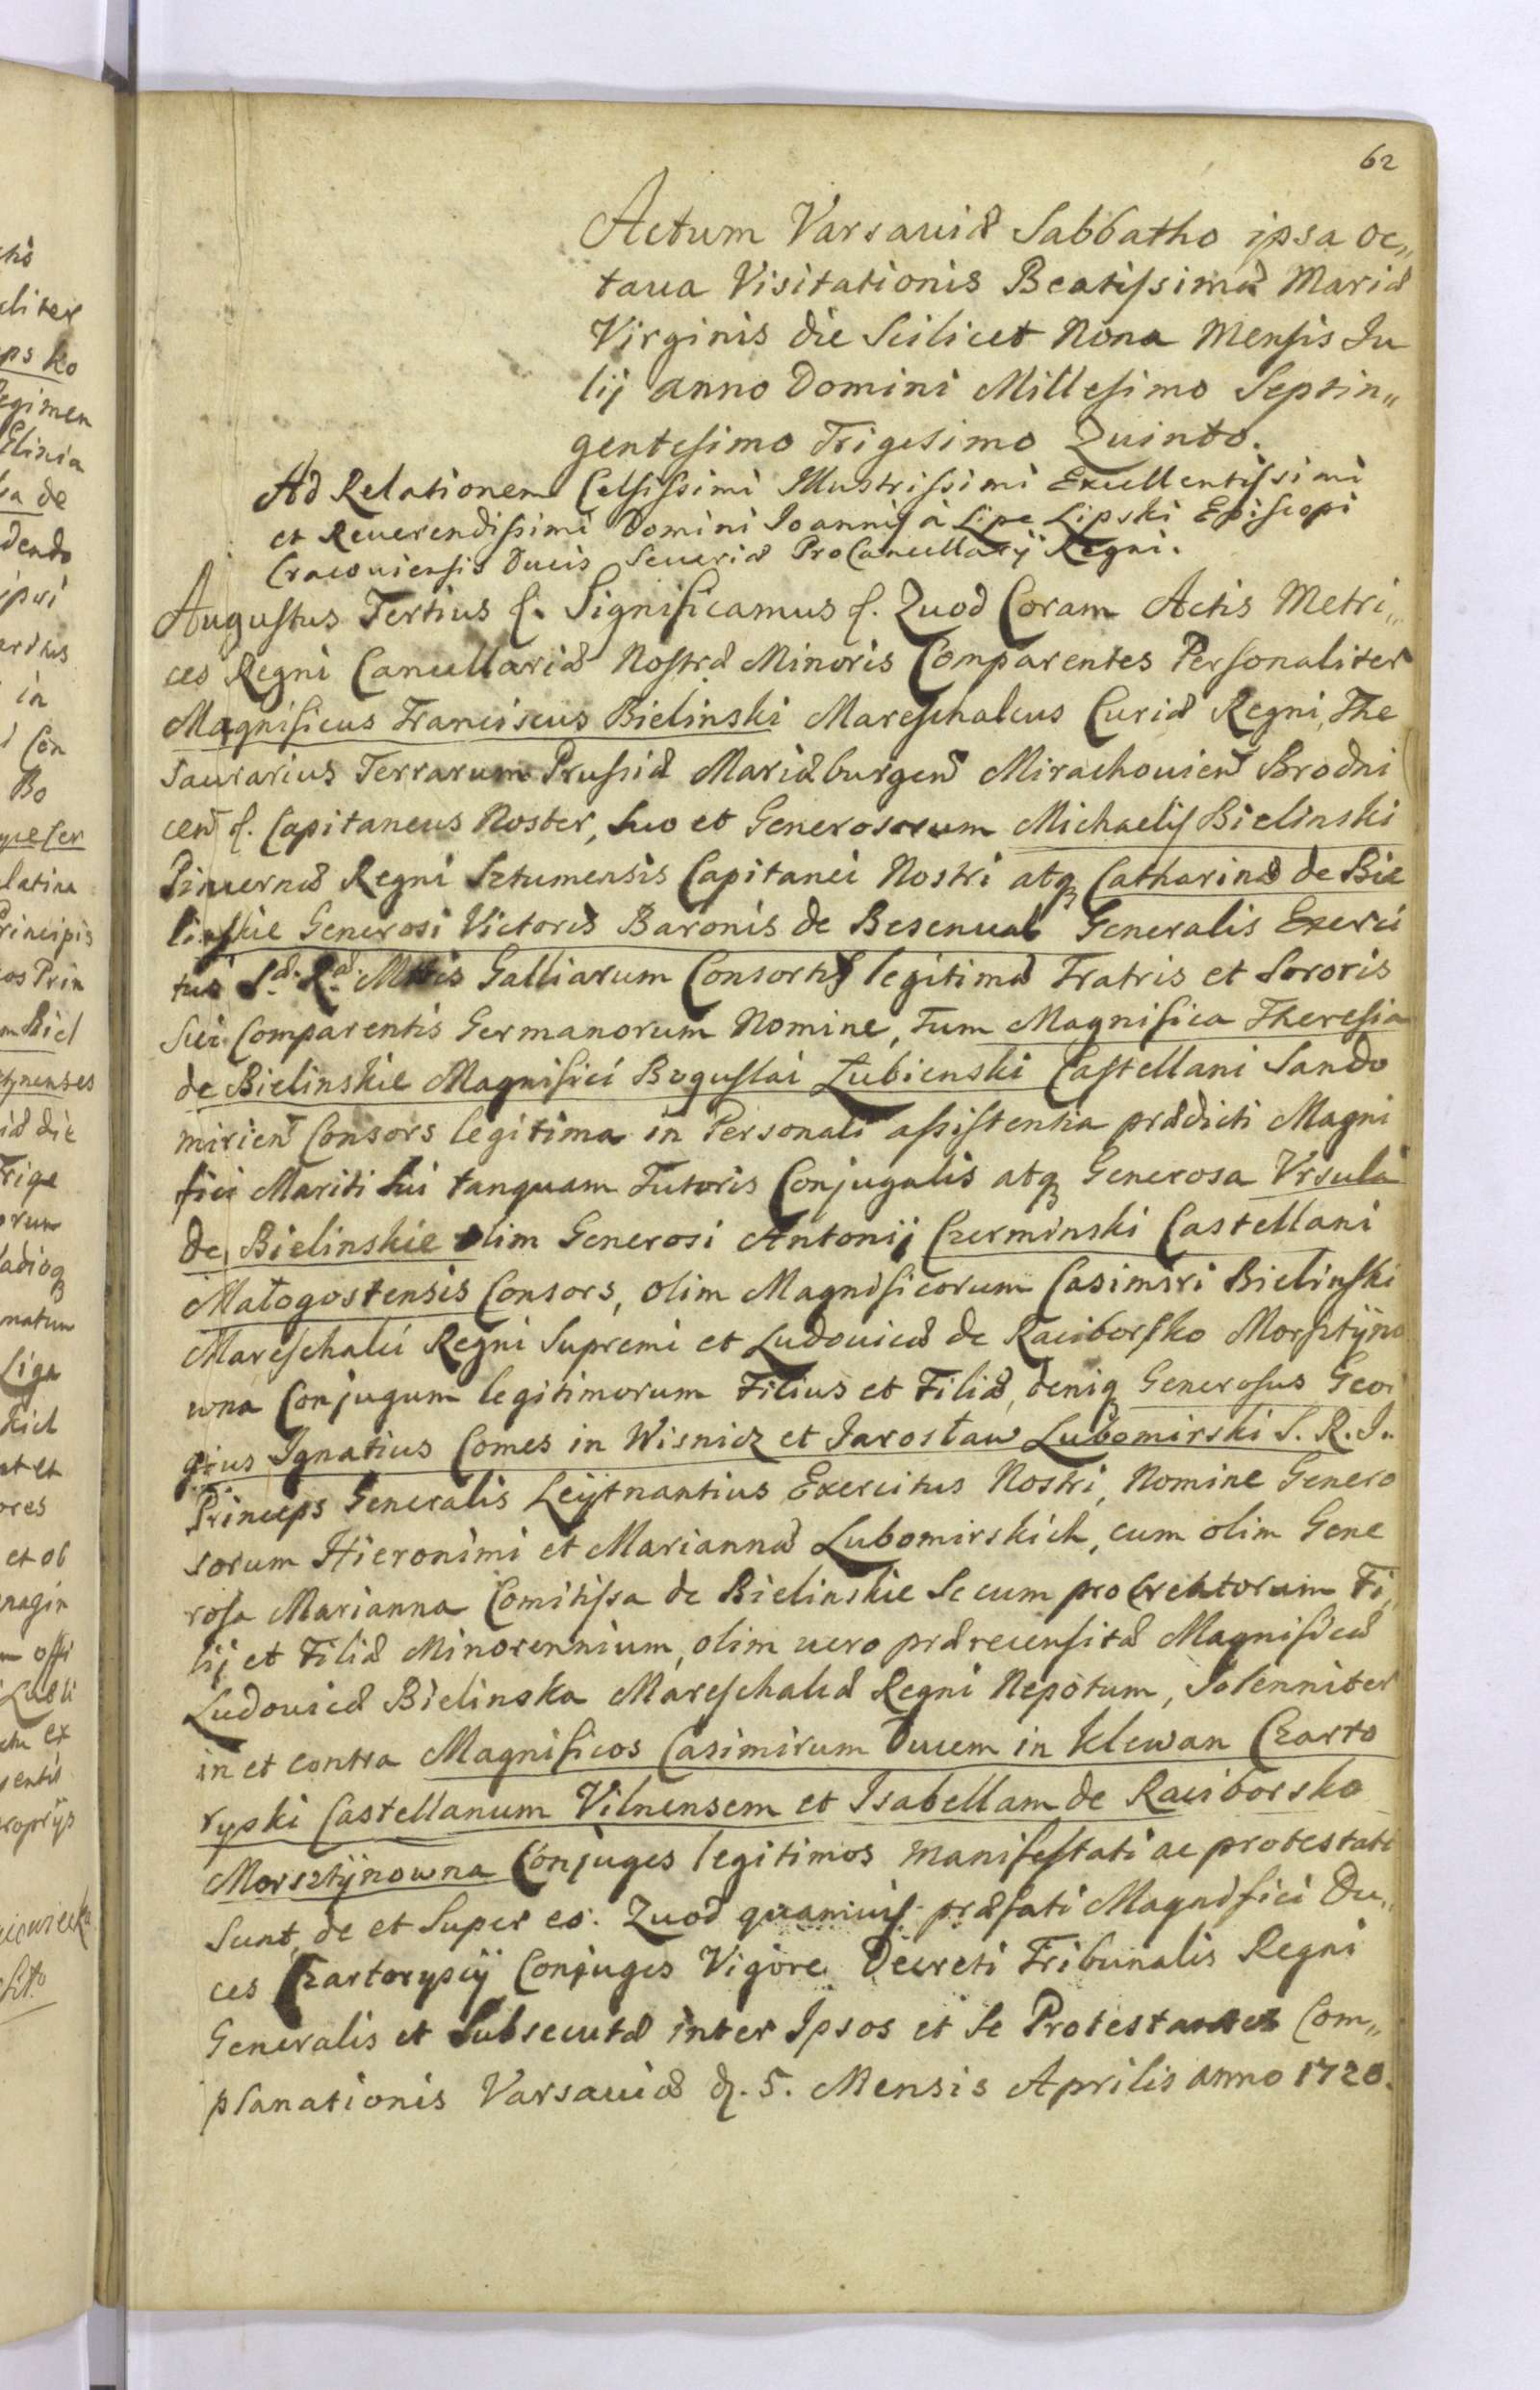 62
Actum Varsaviæ Sabbatho ipsa oc„
taua Visitationis Beatissimæ Mariæ
Virginis die Scilicet Nona Mensis Ju
lij anno Domini Millesimo Septin„
gentesimo Trigesimo Quinto.
Ad Relationem Celsissimi Illustrissimi Excellentissimi
et Reuerendissimi Domini Joannis à Lipe Lipski Episcopi
Cracouiensis Ducis Seueriæ ProCancellarij Regni.
Augustus Tertius &. Significamus &. Quod Coram Actis Metri„
ces Regni Cancellariæ Nostræ Minoris Comparentes Personaliter
Magnificus Franciscus Bielinski Mareschalcus Curiæ Regni, The
saurarius Terrarum Prussiæ Mariæburgen Mirachouien Brodni
cen &. Capitaneus Noster, Suo et Generosorum Michaelis Bielinski
Pincernæ Regni Sztumensis Capitanei Nostri atq Catharinæ de Bie
linskie Generosi Victoris Baronis de Besenual Generalis Exerci
tus Sæ. Ræ. Mttis Galliarum Consortis legitimæ Fratris et Sororis
Sui Comparentis Germanorum Nomine, Tum Magnifica Theresia
de Bielinskie Magnifici Boguslai Łubienski Castellani Sando
mirien Consors legitima in Personali assistentia prædicti Magni
fici Mariti Sui tanquam Tutoris Conjugalis atq Generosa Vrsula
de Bielinskie olim Generosi Antonij Czerminski Castellani
Małogostensis Consors, olim Magnificorum Casimiri Bielinski
Mareschalci Regni Supremi et Ludouicæ de Raciborsko Morsztÿno
wna Conjugum legitimorum Filius et Filiæ, deniq Generosus Geor
gius Ignatius Comes in Wisnicz et Jarosław Lubomirski S. R. I.
Princeps Generalis Leÿtnantius Exercitus Nostri, Nomine Genero
sorum Hieronimi et Mariannæ Lubomirskich, cum olim Gene
rosa Marianna Comitissa de Bielinskie Secum proCreatorum Fi
lij et Filiæ Minorennium, olim uero prærecensitæ Magnificæ
Ludouicæ Bielinska Mareschalcæ Regni Nepotum, Solenniter
in et contra Magnificos Casimirum Ducem in Klewan Czarto
ryski Castellanum Vilnensem et Isabellam de Raciborsko
Morsztÿnowna Conjuges legitimos manifestati ac protestati
Sunt, de et Super eo. Quod quamuis præfati Magnifici Du„
ces Czartoryscij Conjuges Vigore Decreti Tribunalis Regni
Generalis et Subsecutæ inter Ipsos et Se Protestantes Com„
planationis Varsauiæ d. 5. Mensis Aprilis anno 1728.